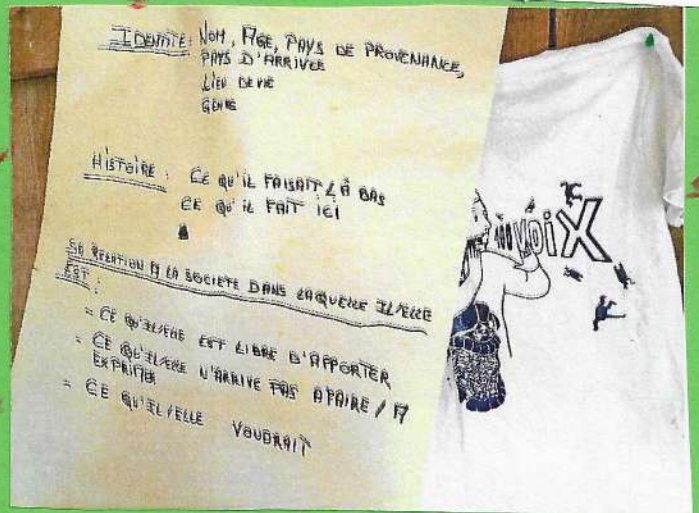 IDENTITE: NOM, AGE, PAYS DE PROVENANCE,
PAYS D'ARRIVEE
LIEU DE VIE
GENRE
HISTOIRE : CE QU'IL FAISAIT LÀ BAS
CE QU'IL FAIT ICI
SA RELATION A LA SOCIETE DANS LAQUELLE IL/ELLE
EST :
- CE QU'IL/ELLE EST LIBRE D'APPORTER
- CE QU'IL/ELLE N'ARRIVE PAS A FAIRE / A
EXPRIMER
- CE QU'IL/ELLE VOUDRAIT
VOIX